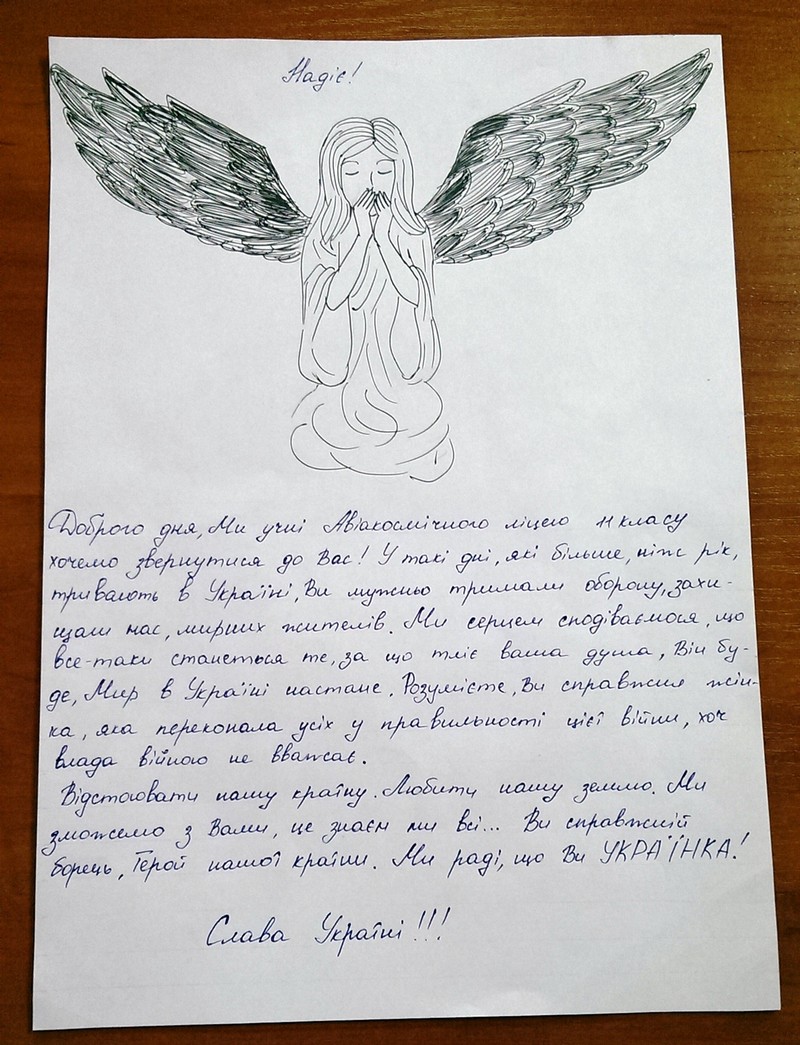 Надіє!
Доброго дня, Ми учні Авіакосмічного ліцею 11 класу
хочемо звернутися до Вас! У такі дні, які більше, ніж рік,
тривають в Україні, Ви мужньо тримали оборону, захи-
щали нас, мирних жителів. Ми серцем сподіваємося, що
все-таки станеться те, за що тліє ваша душа, Він бу-
де, Мир в Україні настане. Розумієте, Ви справжня жін-
ка, яка переконала усіх у правильності цієї війни, хоч
влада війною не вважає.
Відстоювати нашу країну. Любити нашу землю. Ми
зможемо з Вами, це знаєм ми всі... Ви справжній
борець, Герой нашої країни. Ми раді, що Ви УКРАЇНКА!
Слава Україні!!!